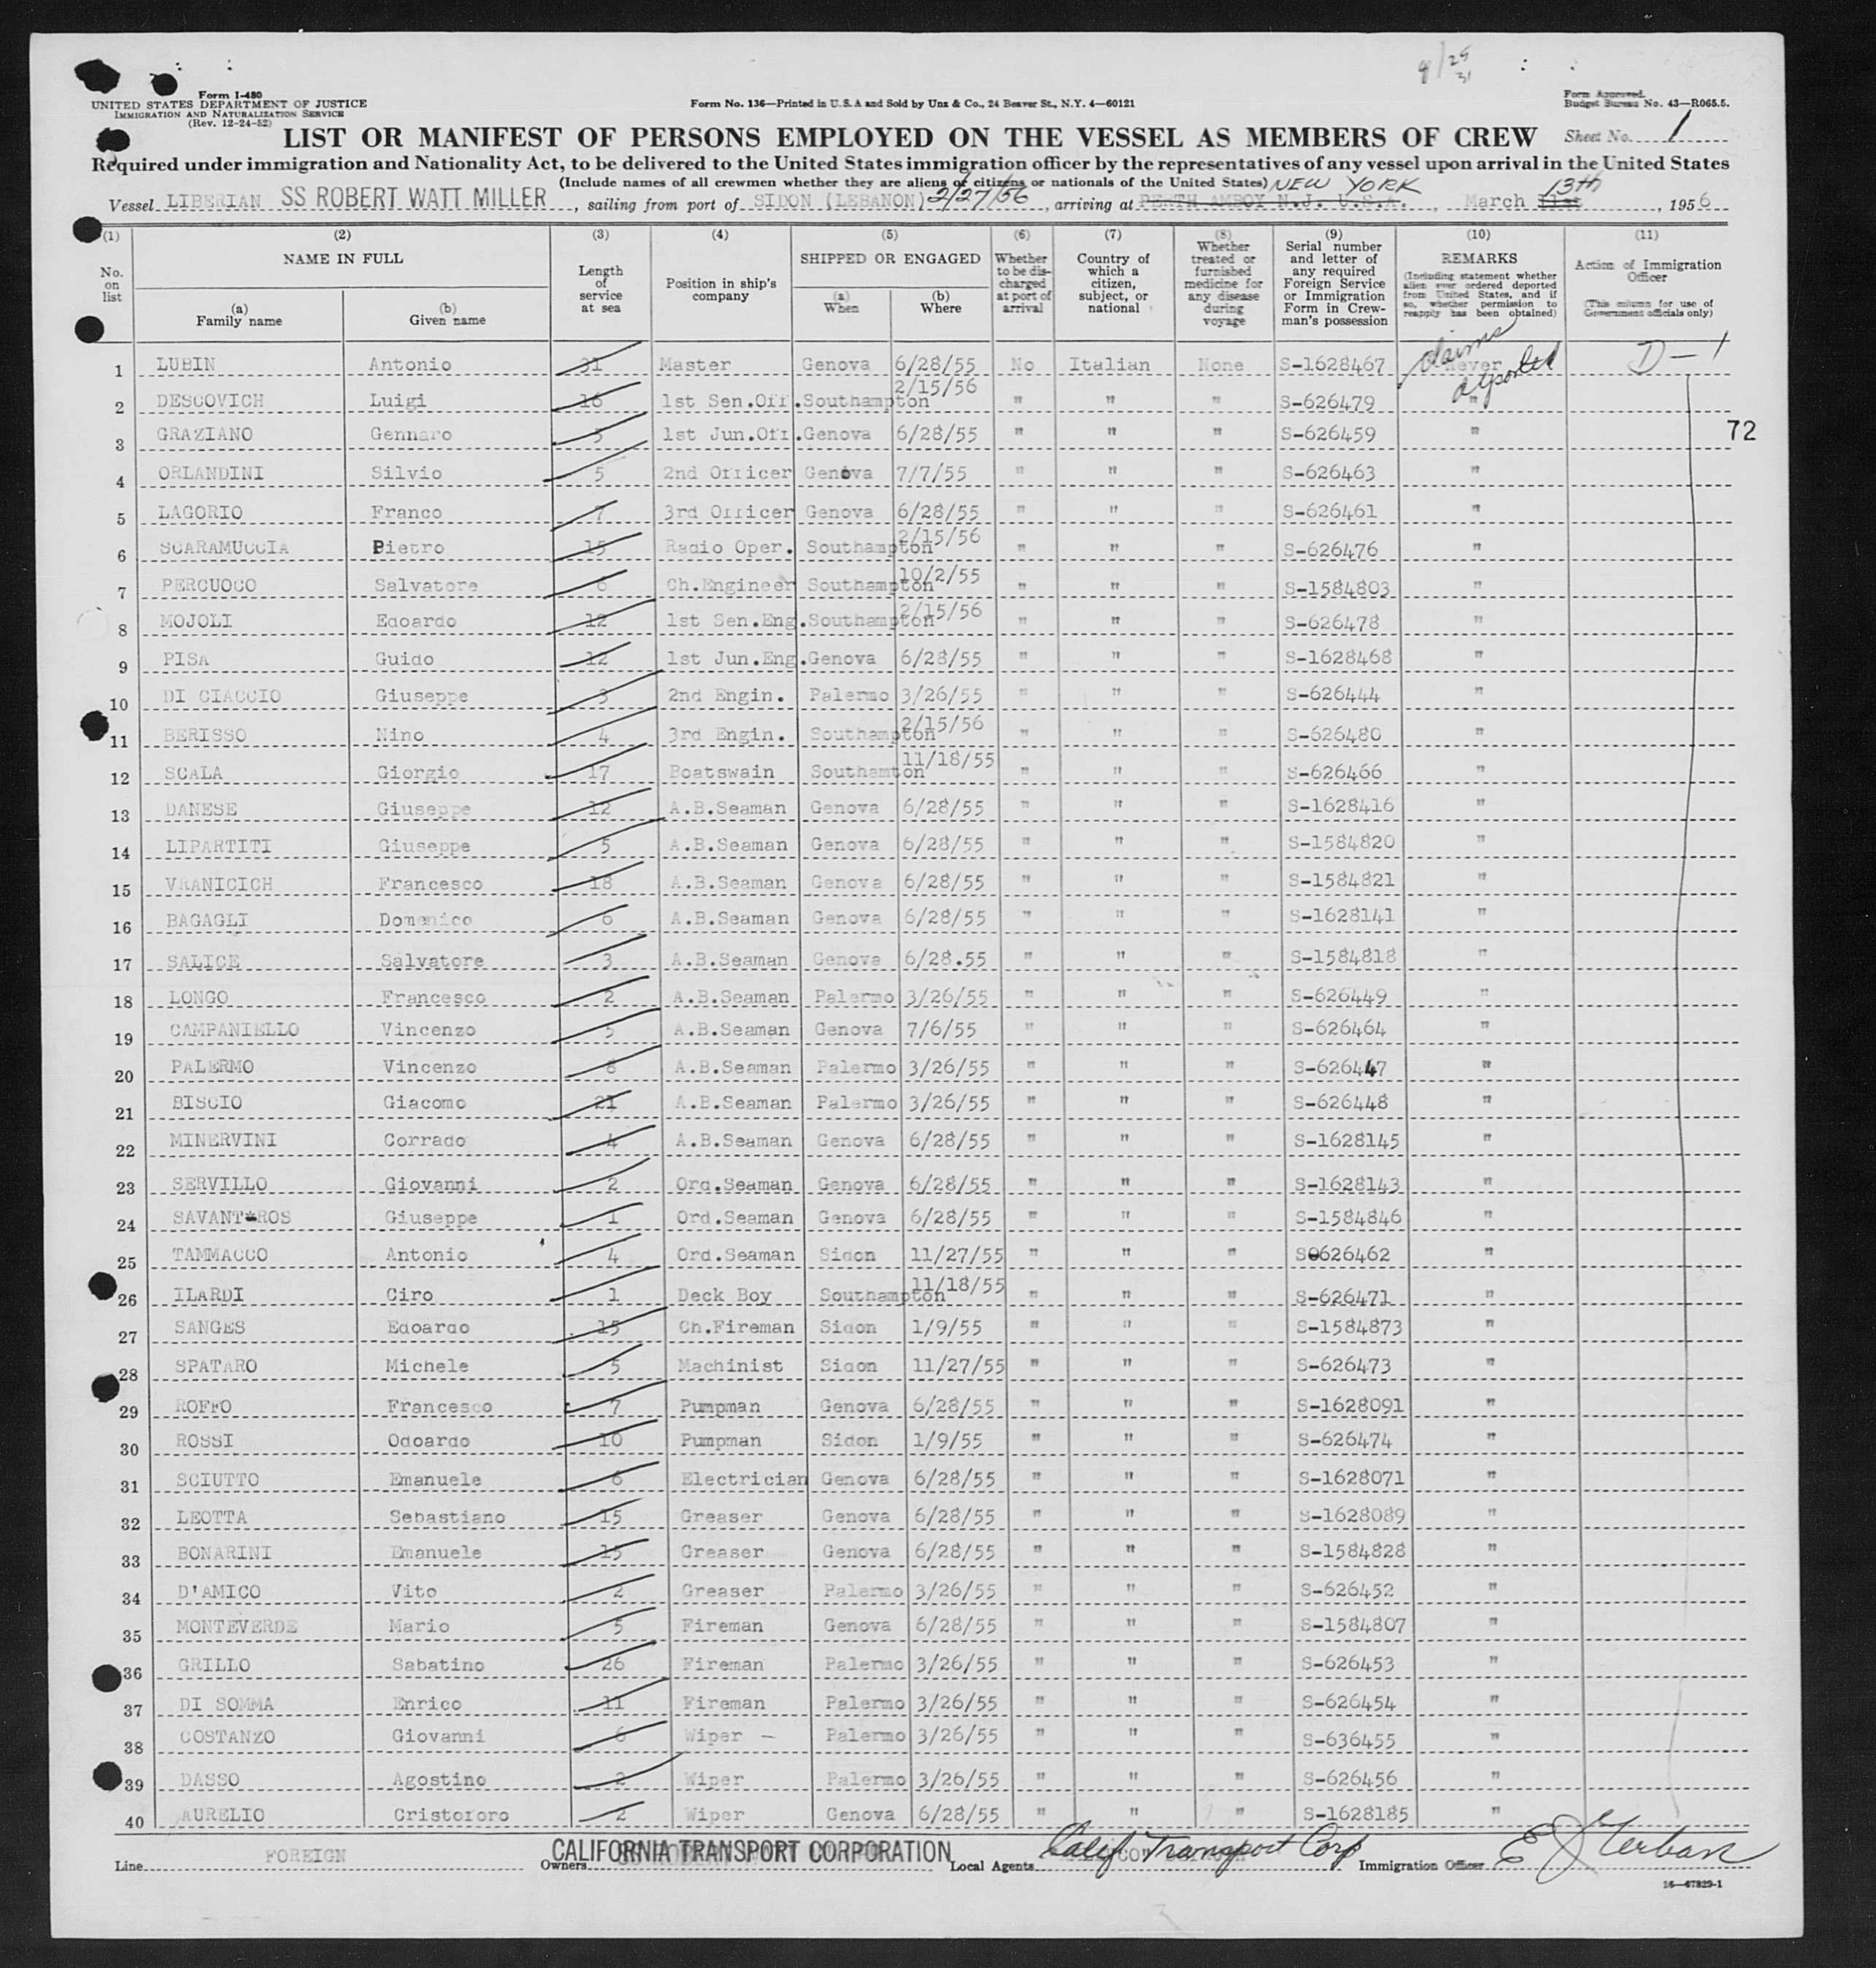 9/25
31
Form I-480
UNITED STATES DEPARTMENT OF JUSTICE
IMMIGRATION AND NATURALIZATION SERVICE
(Rev. 12-24-52)
Form No. 136—Printed in U.S.A and Sold by Unz & Co., 24 Beaver St., N.Y. 4—60121
Form Approved.
Budget Bureau No. 43—R065.5.
LIST OR MANIFEST OF PERSONS EMPLOYED ON THE VESSEL AS MEMBERS OF CREW Sheet No. 1
Required under immigration and Nationality Act, to be delivered to the United States immigration officer by the representatives of any vessel upon arrival in the United States
(Include names of all crewmen whether they are aliens or citizens or nationals of the United States) NEW YORK 13th
Vessel LIBERIAN SS ROBERT WATT MILLER, sailing from port of SIDON (LEBANON) 2/27/56, arriving at PERTH AMBOY N.J. U.S.A., March 11st, 1956
(1) (2) (3) (4) (5) (6) (7) (8) (9) (10) (11)
No. on list
NAME IN FULL
(a) Family name
(b) Given name
Length of service at sea
Position in ship's company
SHIPPED OR ENGAGED
(a) When
(b) Where
Whether to be discharged at port of arrival
Country of which a citizen, subject, or national
Whether treated or furnished medicine for any disease during voyage
Serial number and letter of any required Foreign Service or Immigration Form in Crewman's possession
REMARKS
(Including statement whether alien ever ordered deported from United States, and if so, whether permission to reapply has been obtained)
Action of Immigration Officer
(This column for use of Government officials only)
1 LUBIN Antonio 31 Master Genova 6/28/55 No Italian None S-1628467 claims never deported D-1
2 DESCOVICH Luigi 16 1st Sen.Off. Southampton 2/15/56 " " " S-626479 "
3 GRAZIANO Gennaro 5 1st Jun.Off. Genova 6/28/55 " " " S-626459 " 72
4 ORLANDINI Silvio 5 2nd Officer Genova 7/7/55 " " " S-626463 "
5 LAGORIO Franco 7 3rd Officer Genova 6/28/55 " " " S-626461 "
6 SCARAMUCCIA Pietro 15 Radio Oper. Southampton 2/15/56 " " " S-626476 "
7 PERCUOCO Salvatore 6 Ch.Engineer Southampton 10/2/55 " " " S-1584803 "
8 MOJOLI Edoardo 12 1st Sen.Eng. Southampton 2/15/56 " " " S-626478 "
9 PISA Guido 12 1st Jun.Eng. Genova 6/28/55 " " " S-1628468 "
10 DI CIACCIO Giuseppe 3 2nd Engin. Palermo 3/26/55 " " " S-626444 "
11 BERISSO Nino 4 3rd Engin. Southampton 2/15/56 " " " S-626480 "
12 SCALA Giorgio 17 Boatswain Southamton 11/18/55 " " " S-626466 "
13 DANESE Giuseppe 12 A.B.Seaman Genova 6/28/55 " " " S-1628416 "
14 LIPARTITI Giuseppe 5 A.B.Seaman Genova 6/28/55 " " " S-1584820 "
15 VRANICICH Francesco 18 A.B.Seaman Genova 6/28/55 " " " S-1584821 "
16 BAGAGLI Domenico 6 A.B.Seaman Genova 6/28/55 " " " S-1628141 "
17 SALICE Salvatore 3 A.B.Seaman Genova 6/28.55 " " " S-1584818 "
18 LONGO Francesco 2 A.B.Seaman Palermo 3/26/55 " " " S-626449 "
19 CAMPANIELLO Vincenzo 5 A.B.Seaman Genova 7/6/55 " " " S-626464 "
20 PALERMO Vincenzo 8 A.B.Seaman Palermo 3/26/55 " " " S-626447 "
21 BISCIO Giacomo 21 A.B.Seaman Palermo 3/26/55 " " " S-626448 "
22 MINERVINI Corrado 4 A.B.Seaman Genova 6/28/55 " " " S-1628145 "
23 SERVILLO Giovanni 2 Ord.Seaman Genova 6/28/55 " " " S-1628143 "
24 Giuseppe 1 Ord.Seaman Genova 6/28/55 " " " S-1584846 "
25 TAMMACCO Antonio 4 Ord.Seaman Sidon 11/27/55 " " " S0626462 "
26 ILARDI Ciro 1 Deck Boy Southampton 11/18/55 " " " S-626471 "
27 SANGES Edoardo 15 Ch.Fireman Sidon 1/9/55 " " " S-1584873 "
28 SPATARO Michele 5 Machinist Sidon 11/27/55 " " " S-626473 "
29 ROFFO Francesco 7 Pumpman Genova 6/28/55 " " " S-1628091 "
30 ROSSI Odoardo 10 Pumpman Sidon 1/9/55 " " " S-626474 "
31 SCIUTTO Emanuele 6 Electrician Genova 6/28/55 " " " S-1628071 "
32 LEOTTA Sebastiano 15 Greaser Genova 6/28/55 " " " S-1628089 "
33 BONARINI Emanuele 15 Greaser Genova 6/28/55 " " " S-1584828 "
34 D'AMICO Vito 2 Greaser Palermo 3/26/55 " " " S-626452 "
35 MONTEVERDE Mario 5 Fireman Genova 6/28/55 " " " S-1584807 "
36 GRILLO Sabatino 26 Fireman Palermo 3/26/55 " " " S-626453 "
37 DI SOMMA Enrico 11 Fireman Palermo 3/26/55 " " " S-626454 "
38 COSTANZO Giovanni 6 Wiper - Palermo 3/26/55 " " " S-636455 "
39 DASSO Agostino 2 Wiper Palermo 3/26/55 " " " S-626456 "
40 AURELIO Cristoforo 2 Wiper Genova 6/28/55 " " " S-1628185 "
Line FOREIGN Owners CALIFORNIA TRANSPORT CORPORATION Local Agents Calif Transport Corp Immigration Officer E J Terban
16—67829-1